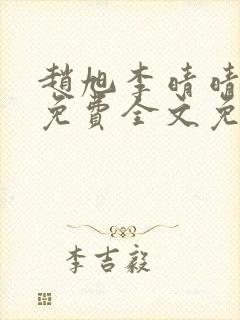 趙旭李晴晴
免費全文免
李吉毅